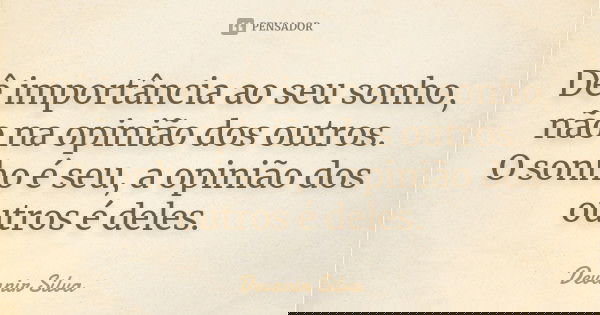 PENSADOR
Dê importância ao seu sonho,
não na opinião dos outros.
O sonho é seu, a opinião dos
outros é deles.
Devanir Silva